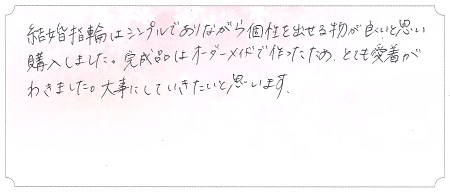 結婚指輪はシンプルでありながら個性を出せる物が良いと思い
購入しました。完成品はオーダーメイドで作ったため、とても愛着が
わきました。大事にしていきたいと思います。